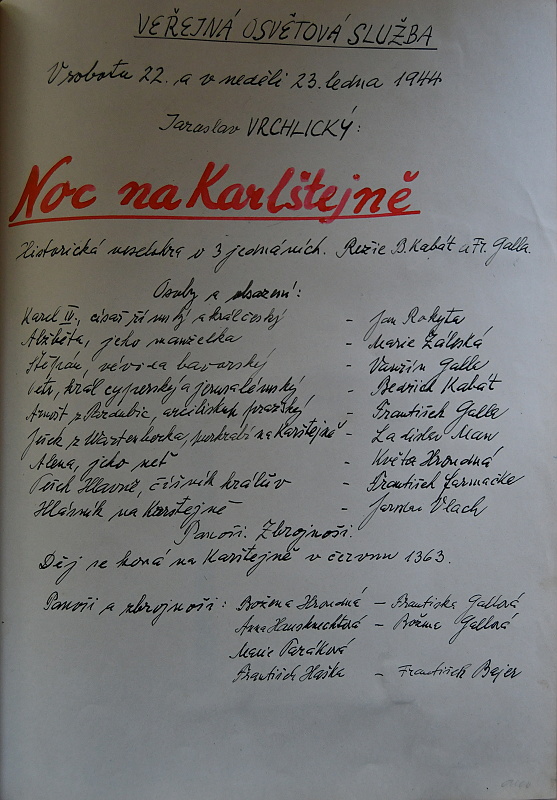 VEŘEJNÁ OSVĚTOVÁ SLUŽBA
V sobotu 22. a v neděli 23. ledna 1944
Jaroslav VRCHLICKÝ:
Noc na Karlštejně
Historická veselohra o 3 jednáních. Režie B. Kabát a Fr. Galla.
Osoby a obsazení:
Karel IV., císař římský a král český - Jan Rokyta
Alžběta, jeho manželka - Marie Záleská
Štěpán, vévoda bavorský - Galle
Petr, král cyperský a jerusalémský - Bedřich Kabát
Arnošt z Pardubic, arcibiskup pražský - František Galla
Ješek z Wartenberka, purkrabí na Karlštejně - Ladislav
Alena, jeho neť - Květa Hrondná
Pešek Hlavně, číšník králův - František
Hlásník na Karlštejně - Jaroslav Vlach
Panoši. Zbrojnoši.
Děj se koná na Karlštejně v červnu 1363.
Panoši a zbrojnoši: Božena Hrondná - Františka Gallová
Anna Hausknechtová - Božena Gallová
Marie
František Haška - František Bajer